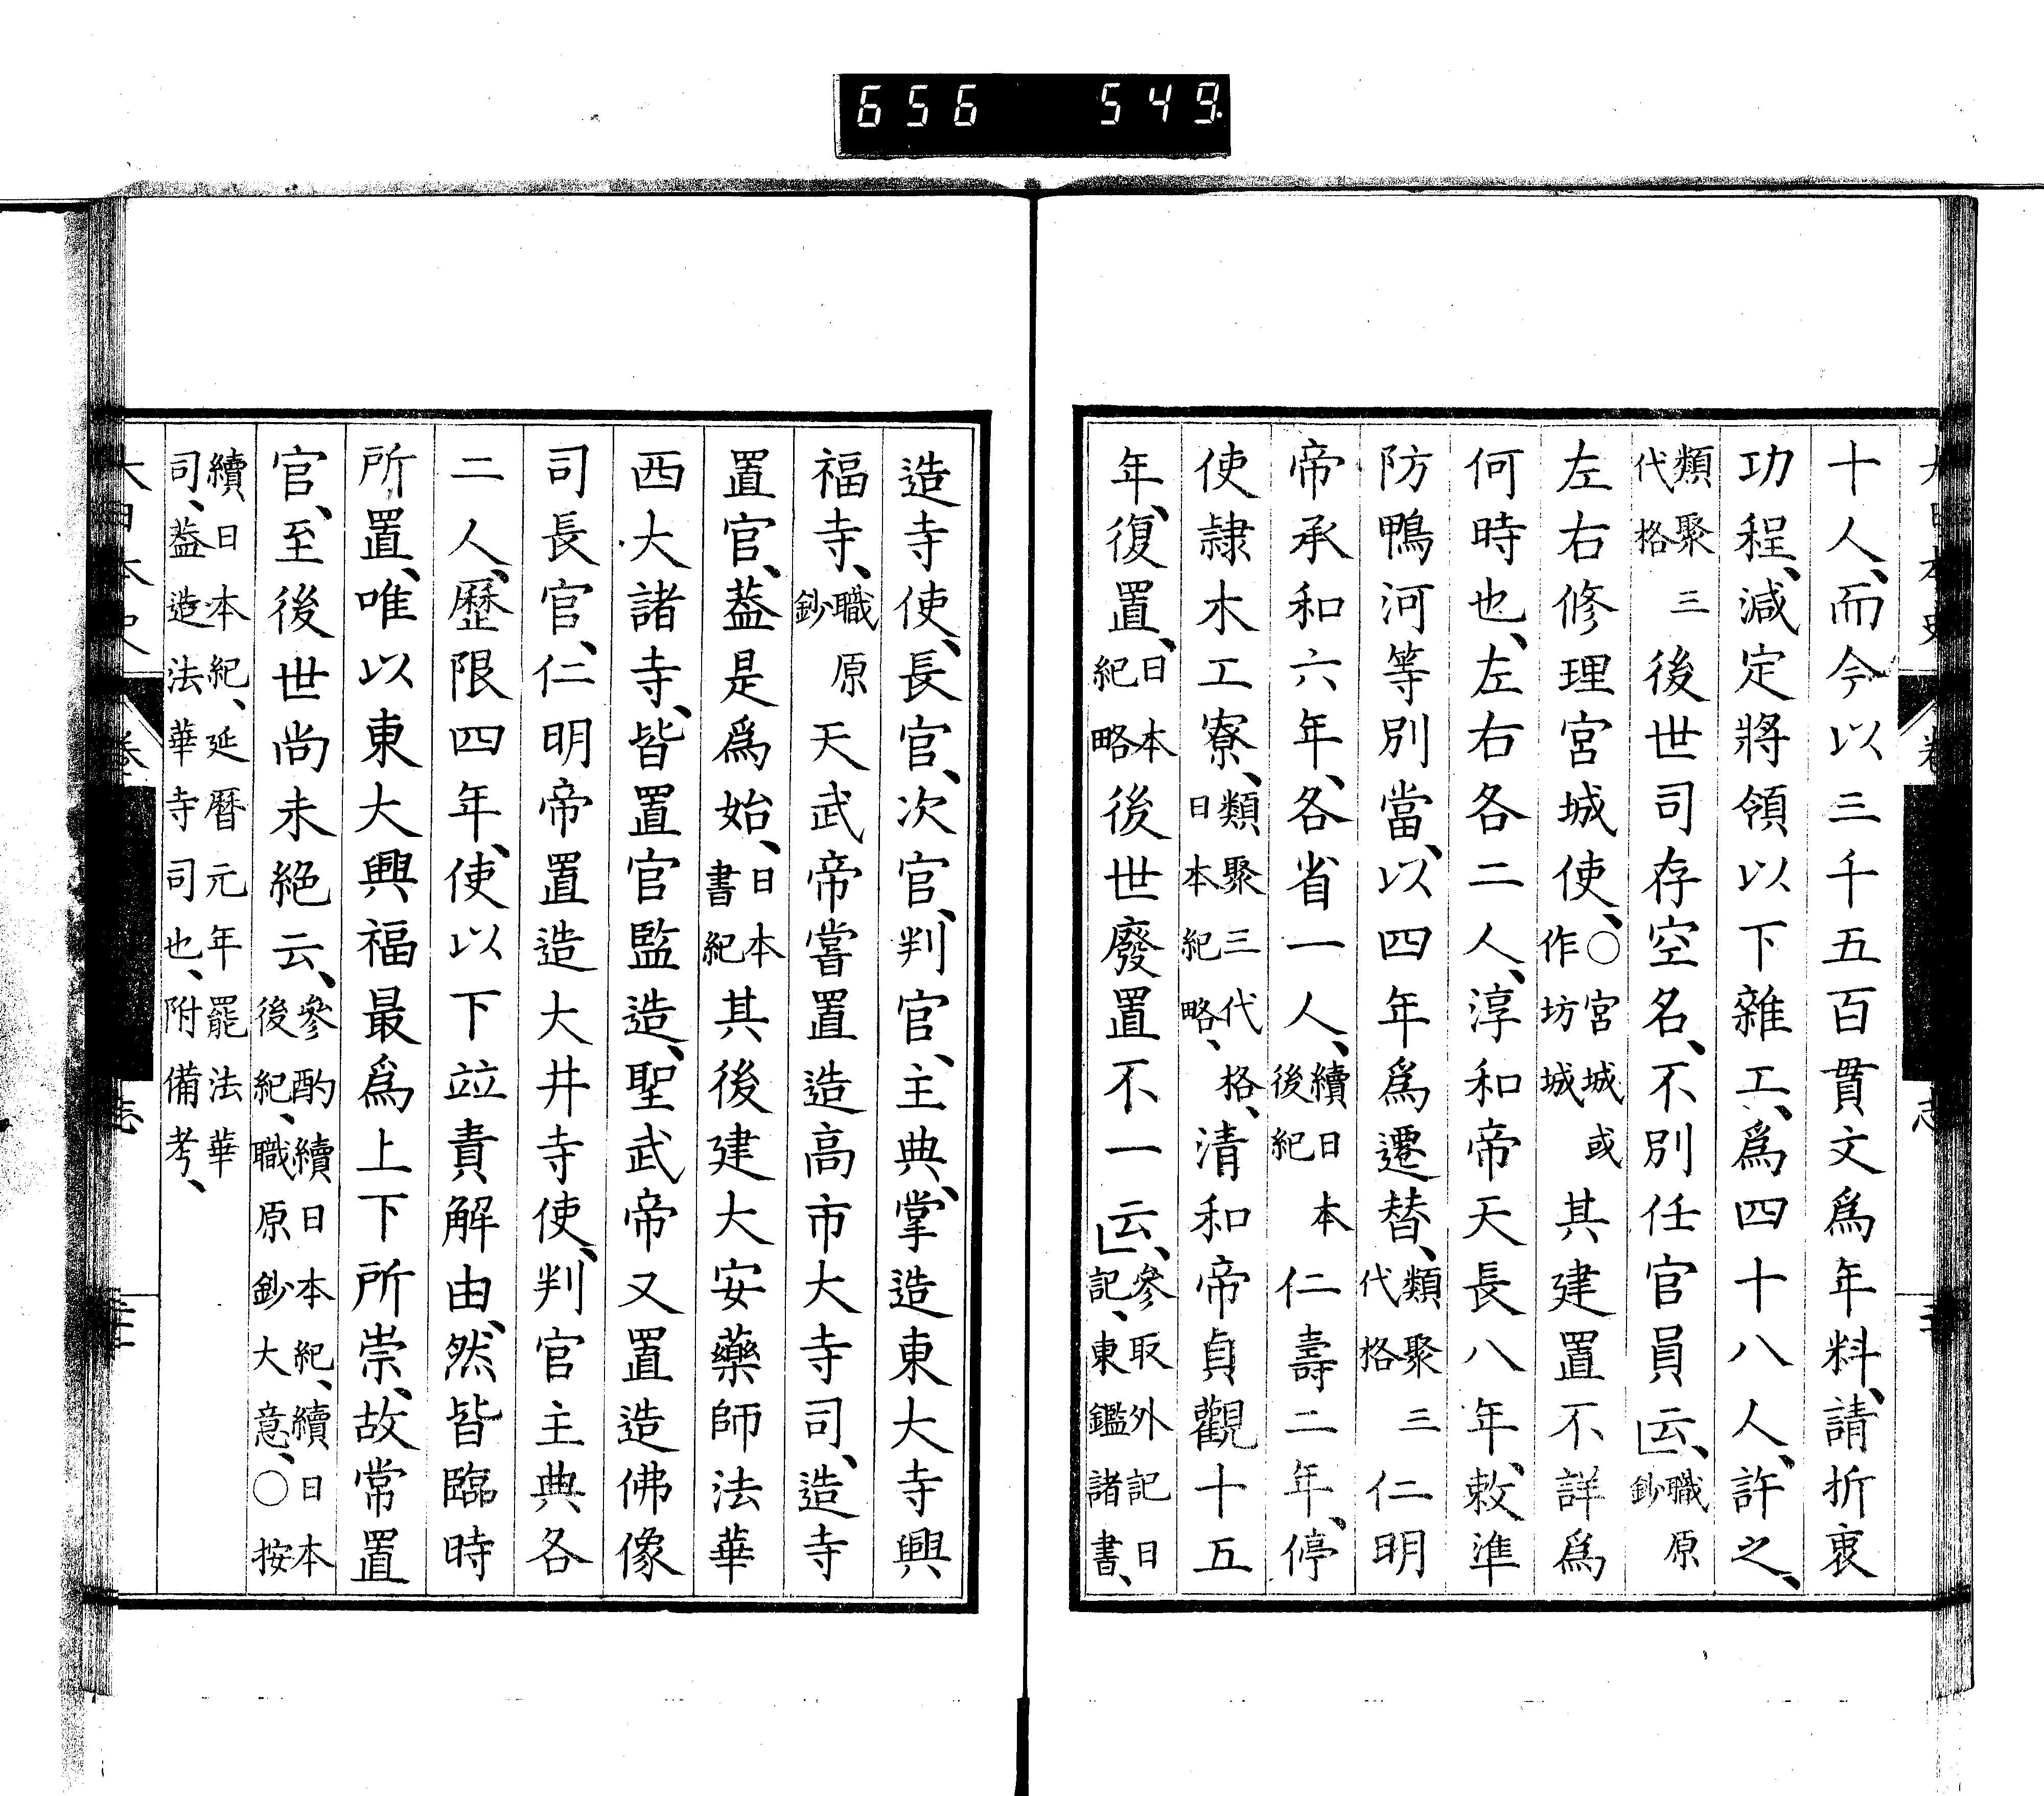 656 549
十人、而今以三千五百貫文爲年料、請折衷
功程、減定將領以下雜工、爲四十八人、許之、
類聚三代格後世司存空名、不別任官員云、職原鈔
左右修理宮城使、○宮城或作坊城其建置不詳爲
何時也、左右各二人、淳和帝天長八年、敕準
防鴨河等別當、以四年爲遷替、類聚三代格仁明
帝承和六年、各省一人、續日本後紀仁壽二年、停
使隷木工寮、類聚三代格、日本紀略、清和帝貞觀十五
年、復置、日本紀略後世廢置不一云、參取外記日記、東鑑諸書、
造寺使、長官、次官、判官、主典、掌造東大寺興
福寺、職原鈔天武帝嘗置造高市大寺司、造寺
置官、葢是爲始、日本書紀其後建大安藥師法華
西大諸寺、皆置官監造、聖武帝又置造佛像
司長官、仁明帝置造大井寺使、判官主典各
二人、歷限四年、使以下竝責解由、然皆臨時
所置、唯以東大興福最爲上下所崇、故常置
官、至後世尚未絕云、參酌續日本紀、續日本後紀、職原鈔大意、○按
續日本紀、延曆元年罷法華司、葢造法華寺司也、附備考、
大日本史 卷 志